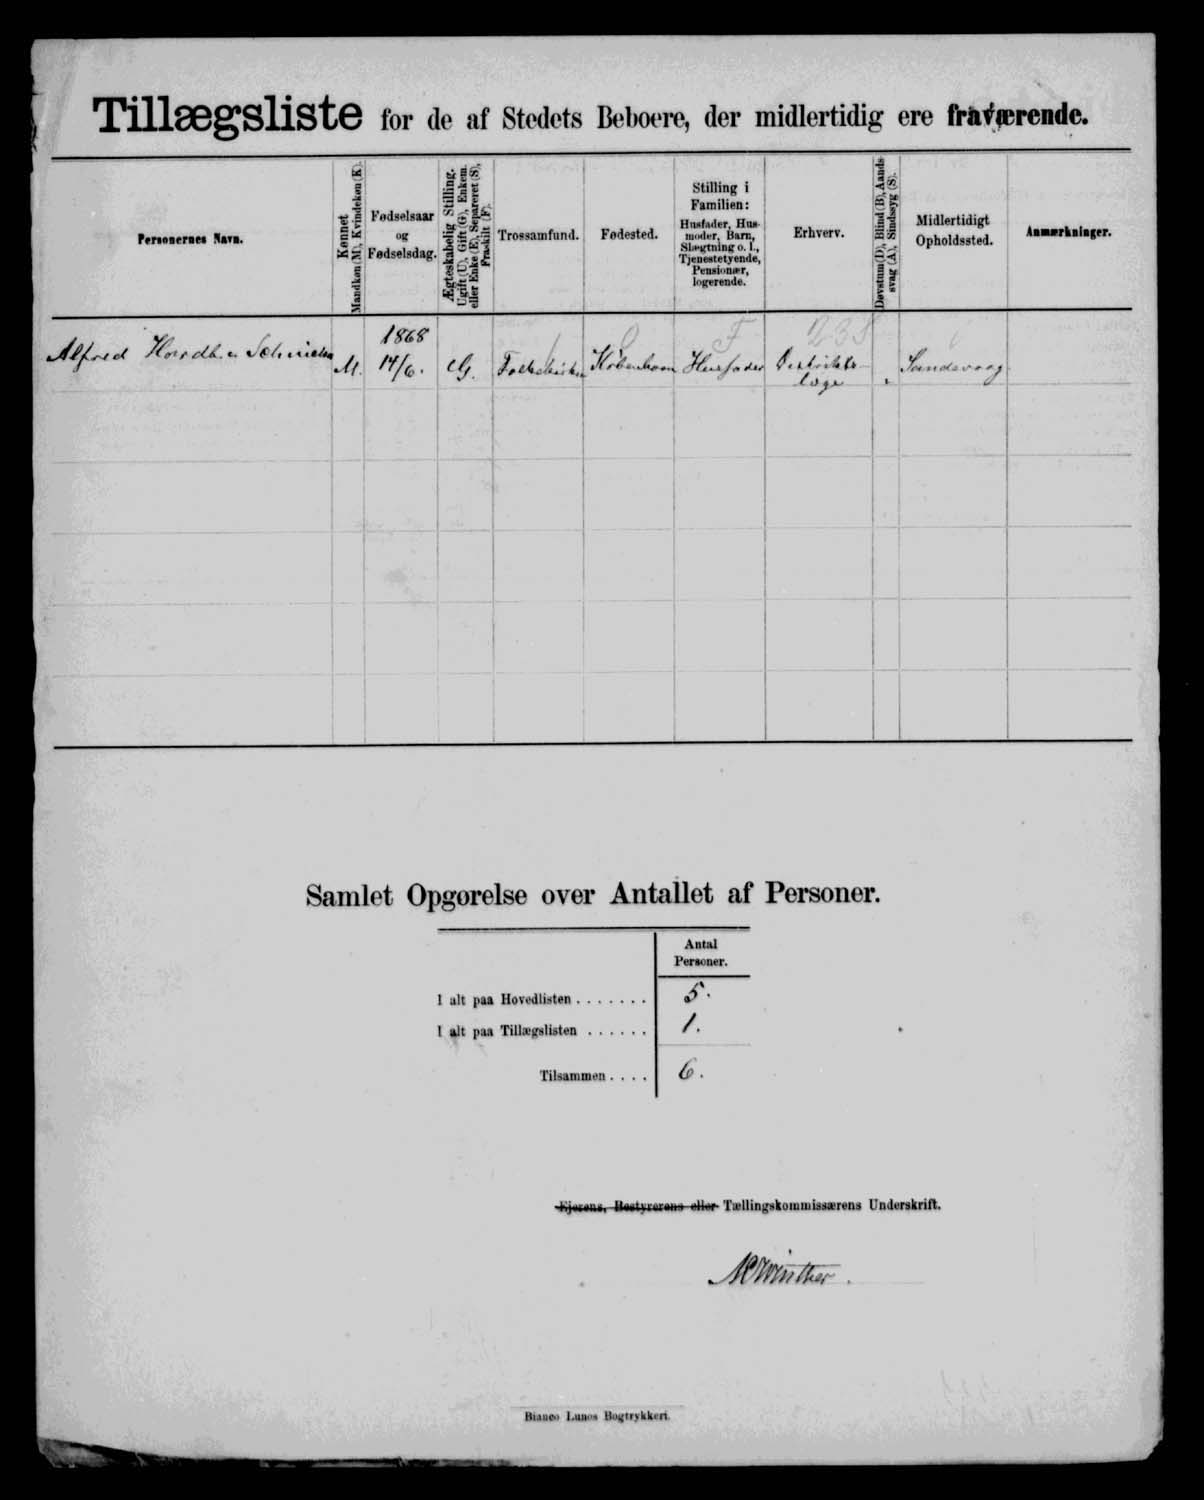 Tillægsliste for de af Stedets Beboere, der midlertidig ere fraværende.
Personernes Navn.
Kønnet
Mandkøn (M), Kvindekøn (K).
Fødselsaar
og
Fødselsdag.
Ægteskabelig Stilling.
Ugift (U), Gift (G), Enkem.
eller Enke (E), Separeret (S),
Fraskilt (F).
Trossamfund.
Fødested.
Stilling i
Familien:
Husfader, Hus-
moder, Barn,
Slægtning o. l.,
Tjenestetyende,
Pensionær,
logerende.
Erhverv.
Døvstum (D), Blind (B), Aands-
svag (A), Sindssyg (S).
Midlertidigt
Opholdssted.
Anmærkninger.
Alfred
M.
1868
14/6.
G.
Folkekirken
København
Husfader
F
Distrikts-
læge
Sandevaag
Samlet Opgørelse over Antallet af Personer.
Antal
Personer.
I alt paa Hovedlisten . . . . . . . 5.
I alt paa Tillægslisten . . . . . . 1.
Tilsammen . . . . 6.
Ejerens, Bestyrerens eller Tællingskommissærens Underskrift.
Winther.
Bianco Lunos Bogtrykkeri.